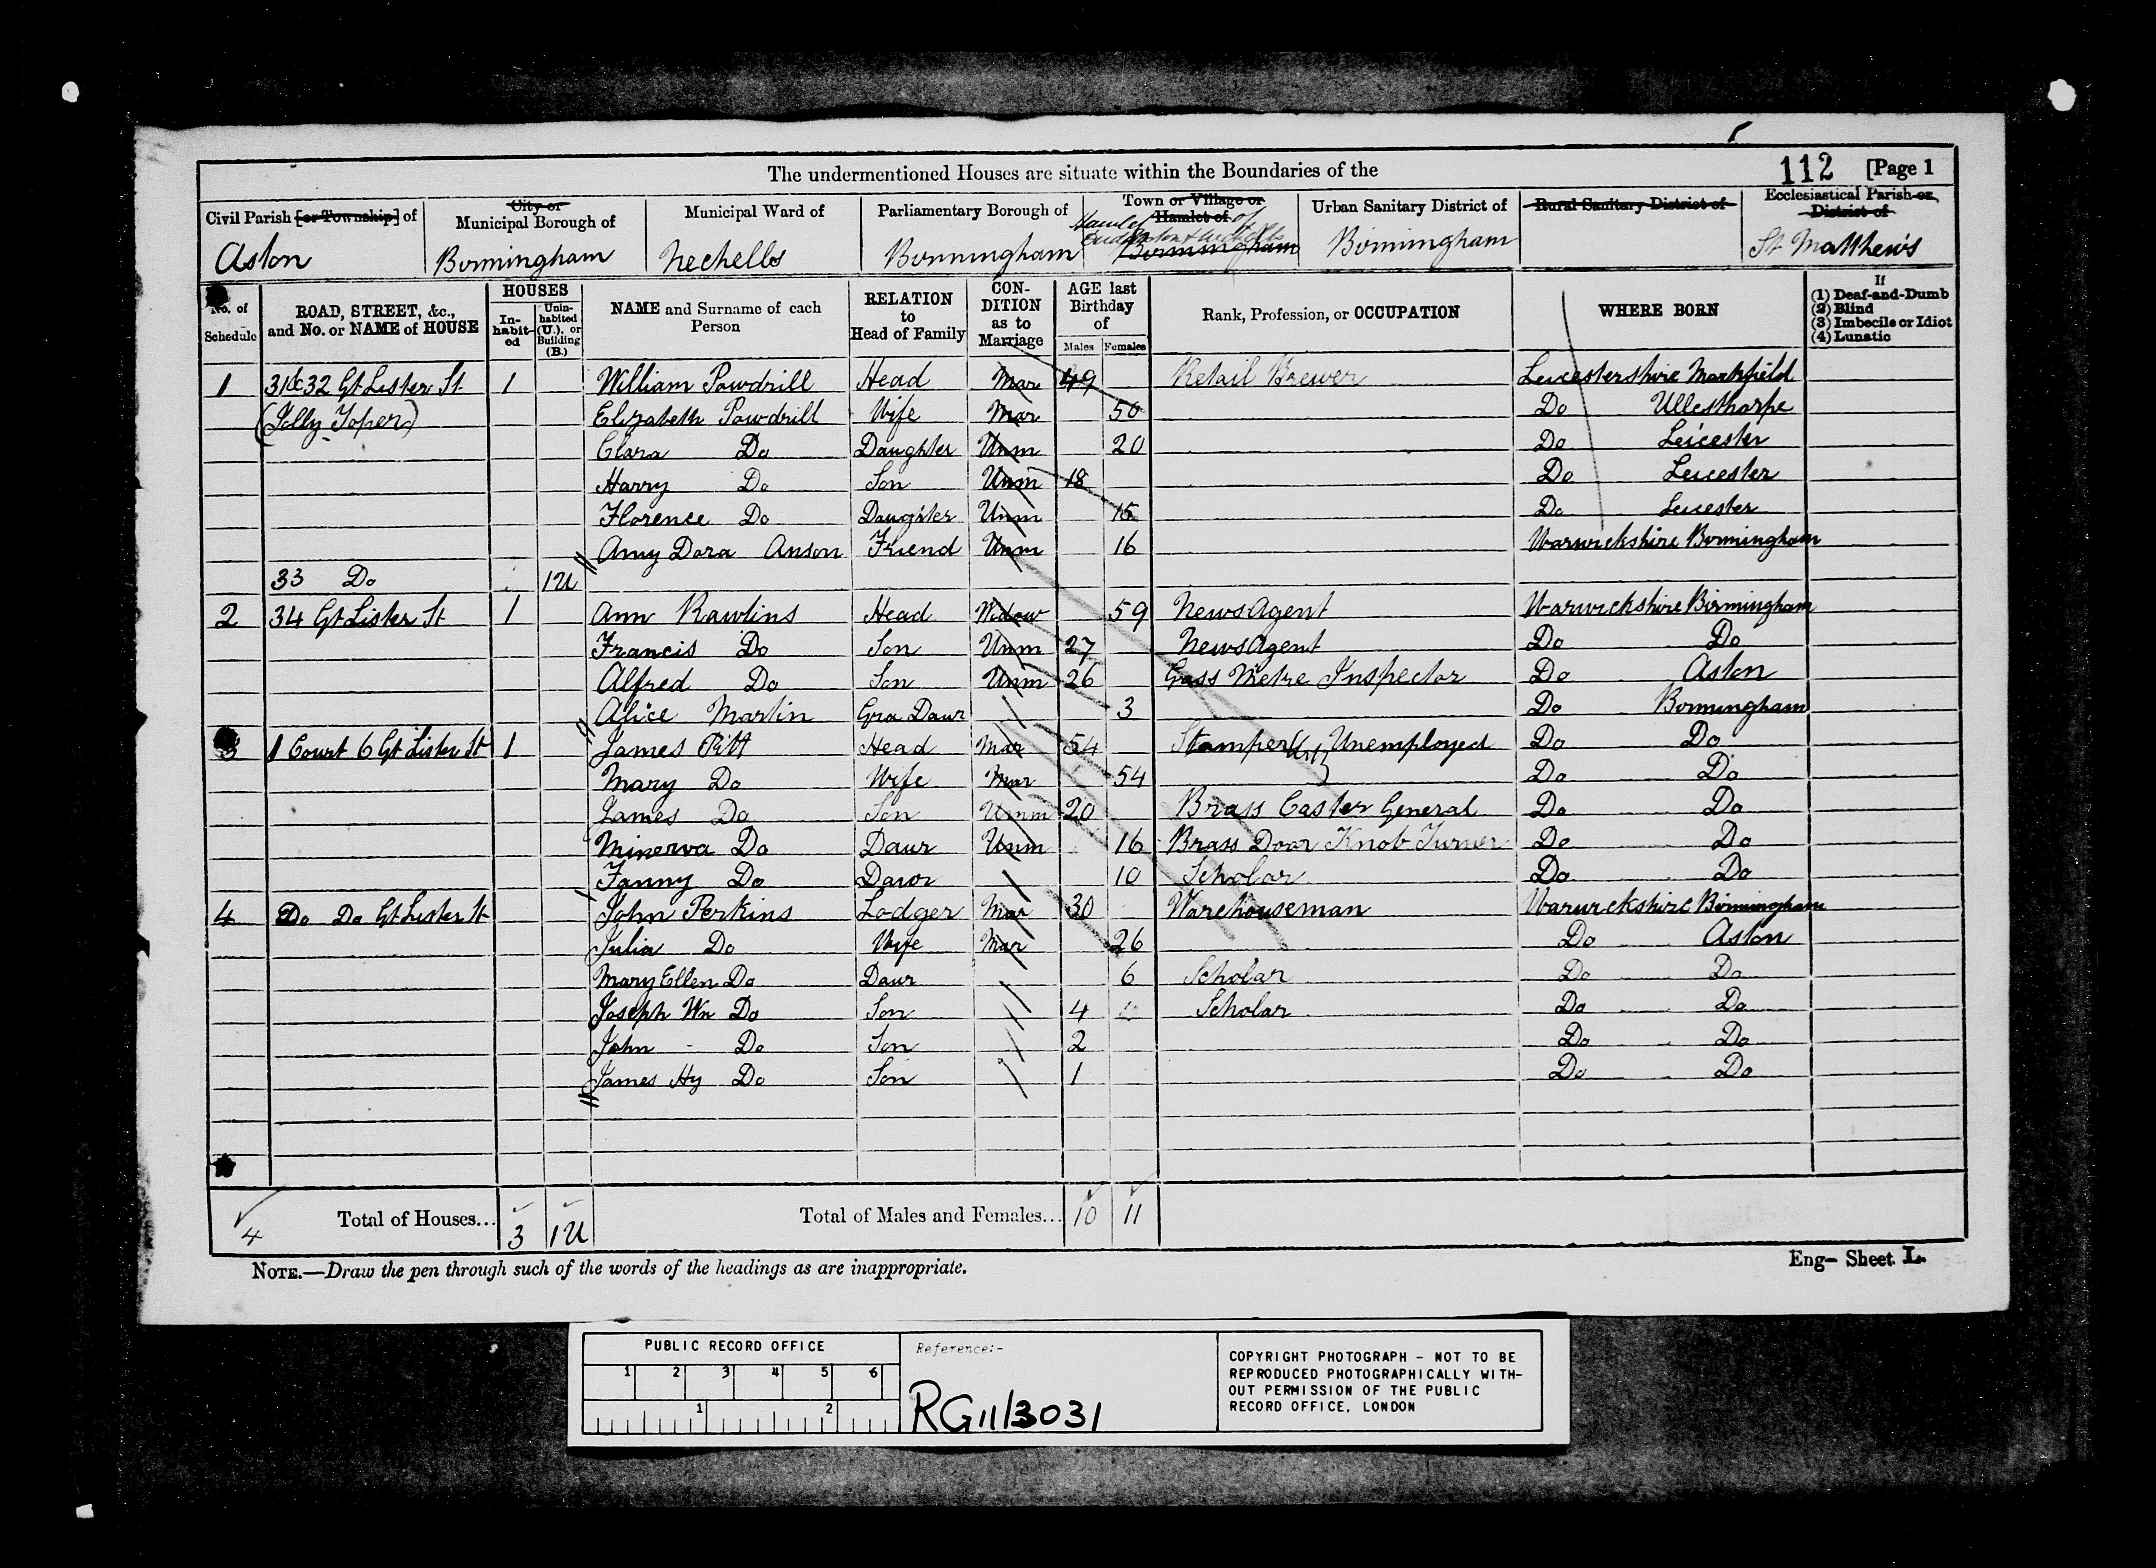 The undermentioned Houses are situate within the Boundaries of the
112 [Page 1
Civil Parish [or Township] of
City or Municipal Borough of
Municipal Ward of
Parliamentary Borough of
Town or Village or Hamlet of
Urban Sanitary District of
Rural Sanitary District of
Ecclesiastical Parish or District of
Aston
Birmingham
Nechells
Birmingham
Hamlet of
Birmingham
Birmingham
St Matthew's
No. of Schedule
ROAD, STREET, &c., and No. or NAME of HOUSE
HOUSES
In-habit-ed
Unin-habited (U.), or Building (B.)
NAME and Surname of each Person
RELATION to Head of Family
CON-DITION as to Marriage
AGE last Birthday of
Males Females
Rank, Profession, or OCCUPATION
WHERE BORN
If
(1) Deaf-and-Dumb
(2) Blind
(3) Imbecile or Idiot
(4) Lunatic
1 31 & 32 Gt Lister St 1 William Powdrill Head Mar 49 Retail Brewer Leicestershire Markfield
(Jolly Toper) Elizabeth Powdrill Wife Mar 50 Do Ullesthorpe
Clara Do Daughter Unm 20 Do Leicester
Harry Do Son Unm 18 Do Leicester
Florence Do Daughter Unm 15 Do Leicester
Amy Dora Anson Friend Unm 16 Warwickshire Birmingham
33 Do 1U
2 34 Gt Lister St 1 Ann Rawlins Head Widow 59 News Agent Warwickshire Birmingham
Francis Do Son Unm 27 News Agent Do Do
Alfred Do Son Unm 26 Gass Metre Inspector Do Aston
Alice Martin Gra Daur 3 Do Birmingham
3 1 Court 6 Gt Lister St 1 James Pitt Head Mar 54 Stamper Unemployed Do Do
Mary Do Wife Mar 54 Do Do
James Do Son Unm 20 Brass Caster General Do Do
Minerva Do Daur Unm 16 Brass Door Knob Turner Do Do
Fanny Do Daur 10 Scholar Do Do
4 Do Do Gt Lister St John Perkins Lodger Mar 30 Warehouseman Warwickshire Birmingham
Julia Do Wife Mar 26 Do Aston
Mary Ellen Do Daur 6 Scholar Do Do
Joseph Wm Do Son 4 Scholar Do Do
John Do Son 2 Do Do
James Hy Do Son 1 Do Do
4 Total of Houses... 3 1U Total of Males and Females... 10 11
NOTE.—Draw the pen through such of the words of the headings as are inappropriate.
Eng— Sheet L.
PUBLIC RECORD OFFICE
1 2 3 4 5 6
1 2
Reference:-
RG11/3031
COPYRIGHT PHOTOGRAPH - NOT TO BE
REPRODUCED PHOTOGRAPHICALLY WITH-
OUT PERMISSION OF THE PUBLIC
RECORD OFFICE, LONDON